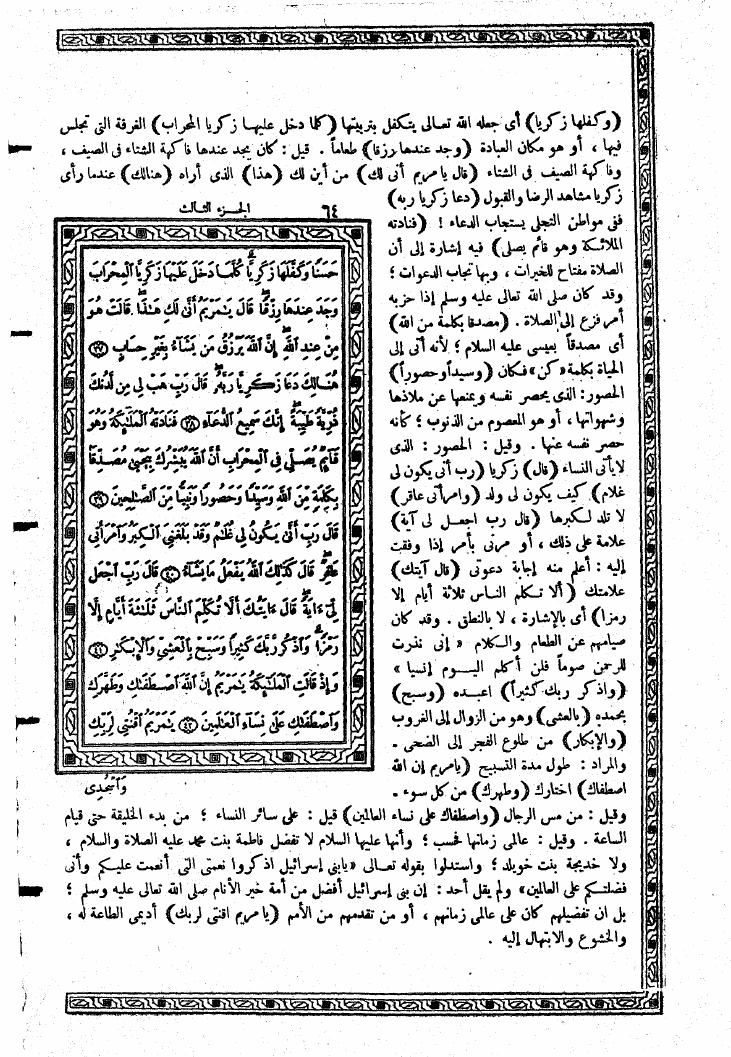 (وكفلها زكريا) أى جعله الله تعالى يتكفل بتربيتها (كلما دخل عليها زكريا المحراب) الغرفة التى تجلس
فيها ، أو هو مكان العبادة (وجد عندها رزقا) طعاماً . قيل : كان يجد عندها فاكهة الشتاء فى الصيف ،
وفاكهة الصيف فى الشتاء (قال يا مريم أنى لك) من أين لك (هذا) الذى أراه (هنالك) عندما رأى
زكريا مشاهد الرضا والقبول (دعا زكريا ربه)
فى مواطن التجلى يستجاب الدعاء ! (فنادته
الملائكة وهو قائم يصلى) فيه إشارة إلى أن
الصلاة مفتاح للخيرات ، وبها تجاب الدعوات ؛
وقد كان صلى الله تعالى عليه وسلم إذا حزبه
أمر فزع إلى الصلاة . (مصدقا بكلمة من الله)
أى مصدقاً بعيسى عليه السلام ؛ لأنه أتى إلى
الحياة بكلمة «كن» فكان (وسيداً وحصوراً)
الحصور : الذى يحصر نفسه ويمنعها عن ملاذها
وشهواتها ، أو هو المعصوم من الذنوب ؛ كأنه
حصر نفسه عنها . وقيل : الحصور : الذى
لا يأتى النساء (قال) زكريا (رب أنى يكون لى
غلام) كيف يكون لى ولد (وامرأتى عاقر)
لا تلد لكبرها (قال رب اجعل لى آية)
علامة على ذلك ، أو مرنى بأمر إذا وفقت
إليه : أعلم منه إجابة دعوتى (قال آيتك)
علامتك (ألا تكلم الناس ثلاثة أيام إلا
رمزا) أى بالإشارة ، لا بالنطق . وقد كان
صيامهم عن الطعام والكلام « إنى نذرت
للرحمن صوماً فلن أكلم اليوم إنسيا »
(واذكر ربك كثيراً) اعبده (وسبح)
بحمده (بالعشى) وهو من الزوال إلى الغروب
(والإبكار) من طلوع الفجر إلى الضحى .
والمراد : طول مدة التسبيح (يا مريم إن الله
اصطفاك) اختارك (وطهرك) من كل سوء .
وقيل : من مس الرجال (واصطفاك على نساء العالمين) قيل : على سائر النساء ؛ من بدء الخليقة حتى قيام
الساعة . وقيل : عالمى زمانها فحسب ؛ وأنها عليها السلام لا تفضل فاطمة بنت محمد عليه الصلاة والسلام ،
ولا خديجة بنت خويلد ؛ واستدلوا بقوله تعالى «يابنى إسرائيل اذكروا نعمتى التى أنعمت عليكم وأنى
فضلتكم على العالمين» ولم يقل أحد : إن بنى إسرائيل أفضل من أمة خير الأنام صلى الله تعالى عليه وسلم ؛
بل ان تفضيلهم كان على عالمى زمانهم ، أو من تقدمهم من الأمم (يا مريم اقنتى لربك) أديمى الطاعة له ،
والخشوع والابتهال إليه .
٦٤ الجزء الثالث
حَسَنًا وَكَفَّلَهَا زَكَرِيَّا كُلَّمَا دَخَلَ عَلَيْهَا زَكَرِيَّا ٱلْمِحْرَابَ
وَجَدَ عِندَهَا رِزْقًا قَالَ يَٰمَرْيَمُ أَنَّىٰ لَكِ هَٰذَا قَالَتْ هُوَ
مِنْ عِندِ ٱللَّهِ إِنَّ ٱللَّهَ يَرْزُقُ مَن يَشَآءُ بِغَيْرِ حِسَابٍ ﴿٣٧﴾
هُنَالِكَ دَعَا زَكَرِيَّا رَبَّهُۥ قَالَ رَبِّ هَبْ لِى مِن لَّدُنكَ
ذُرِّيَّةً طَيِّبَةً إِنَّكَ سَمِيعُ ٱلدُّعَآءِ ﴿٣٨﴾ فَنَادَتْهُ ٱلْمَلَٰٓئِكَةُ وَهُوَ
قَآئِمٌ يُصَلِّى فِى ٱلْمِحْرَابِ أَنَّ ٱللَّهَ يُبَشِّرُكَ بِيَحْيَىٰ مُصَدِّقًۢا
بِكَلِمَةٍ مِّنَ ٱللَّهِ وَسَيِّدًا وَحَصُورًا وَنَبِيًّا مِّنَ ٱلصَّٰلِحِينَ ﴿٣٩﴾
قَالَ رَبِّ أَنَّىٰ يَكُونُ لِى غُلَٰمٌ وَقَدْ بَلَغَنِىَ ٱلْكِبَرُ وَٱمْرَأَتِى
عَاقِرٌ قَالَ كَذَٰلِكَ ٱللَّهُ يَفْعَلُ مَا يَشَآءُ ﴿٤٠﴾ قَالَ رَبِّ ٱجْعَل
لِّىٓ ءَايَةً قَالَ ءَايَتُكَ أَلَّا تُكَلِّمَ ٱلنَّاسَ ثَلَٰثَةَ أَيَّامٍ إِلَّا
رَمْزًا وَٱذْكُر رَّبَّكَ كَثِيرًا وَسَبِّحْ بِٱلْعَشِىِّ وَٱلْإِبْكَٰرِ ﴿٤١﴾
وَإِذْ قَالَتِ ٱلْمَلَٰٓئِكَةُ يَٰمَرْيَمُ إِنَّ ٱللَّهَ ٱصْطَفَىٰكِ وَطَهَّرَكِ
وَٱصْطَفَىٰكِ عَلَىٰ نِسَآءِ ٱلْعَٰلَمِينَ ﴿٤٢﴾ يَٰمَرْيَمُ ٱقْنُتِى لِرَبِّكِ
وَٱسْجُدِى